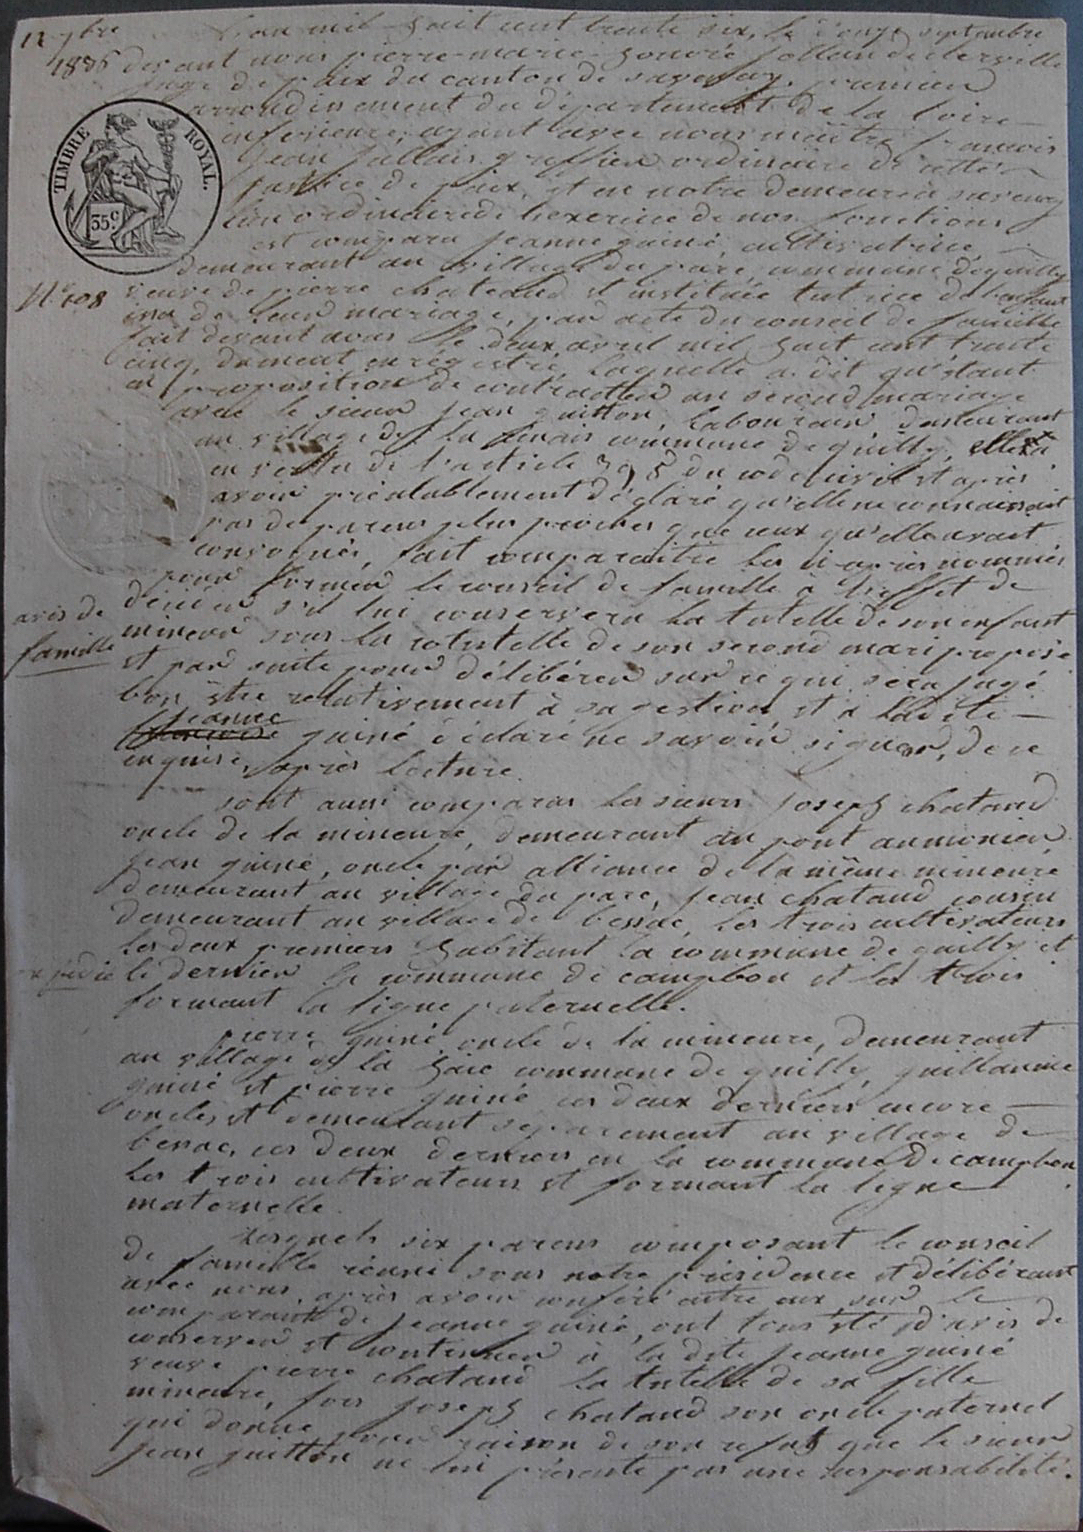 12 7bre
1836
L'an mil huit cent trente six, le douze septembre
devant nous pierre-marie-honoré jollan de clerville
juge de paix du canton de savenay, premier
arrondissement du département de la loire
inférieure, ayant avec nous maître françois
jean jullain greffier ordinaire de cette
justice de paix, et en notre demeure à savenay
lieu ordinaire de l'exercice de nos fonctions
est comparu jeanne guiné, cultivatrice,
demeurant au village du parc, commune de quilly
TIMBRE ROYAL.
35c
N° 108
veuve de pierre chataud et instituée tutrice de l'enfant
issu de leur mariage, par acte du conseil de famille
fait devant nous le deux avril mil huit cent trente
cinq, dument enrégistré, laquelle a dit qu'étant
en proposition de contracter un second mariage
avec le sieur jean guitton, laboureur demeurant
au village de la commune de quilly, elle a
en vertu de l'article 395 du code civil et après
avoir préalablement déclaré qu'elle ne connaissait
pas de parens plus proches que ceux qu'elle avait
convoqués, fait comparaitre les ci-après nommés
pour former le conseil de famille à l'effet de
avis de
famille
décider s'il lui conservera la tutelle de son enfant
mineur sous la cotutelle de son second mari proposé
et par suite pour délibérer sur ce qui sera jugé
bon être relativement à sa gestion, et a ladite
jeanne
guiné déclaré ne savoir signer, de ce
enquise, après lecture.
sont aussi comparus les sieurs joseph chataud
oncle de la mineure, demeurant au pont aumonier,
jean guiné, oncle par alliance de la même mineure
demeurant au village du parc, jean chataud cousin
demeurant au village de bessac, les trois cultivateurs
les deux premiers habitant la commune de quilly et
expédié
le dernier la commune de campbon et les trois
formant la ligne paternelle.
pierre guiné oncle de la mineure, demeurant
au village de la haie commune de quilly, guillaume
guiné et pierre guiné ces deux derniers encore
oncles et demeurant séparement au village de
bessac, ces deux derniers en la commune de campbon,
les trois cultivateurs et formant la ligne
maternelle.
Lesquels six parens composant le conseil
de famille réuni sous notre présidence et délibérant
avec nous, après avoir conféré entre eux sur le
comparant de jeanne guiné, ont tous été d'avis de
conserver et continuer à la dite jeanne guiné
veuve pierre chataud la tutelle de sa fille
mineure, fors joseph chataud son oncle paternel
qui donne pour raison de son refus que le sieur
jean guitton ne lui présente pas une responsabilité.